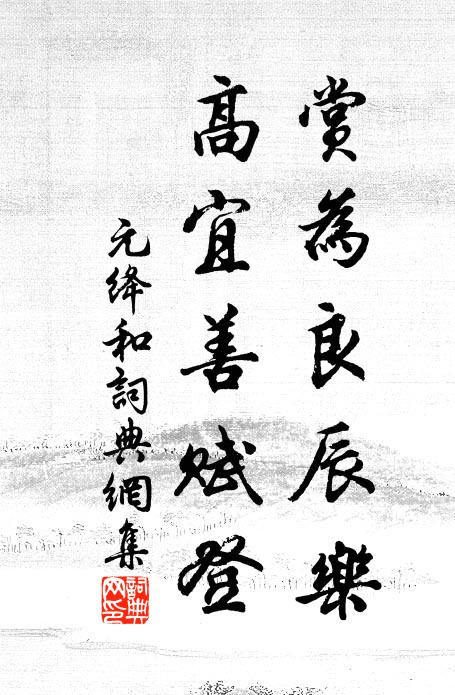 賞為良辰樂
高宜善賦登
元絳和詞典網集
詞典
网